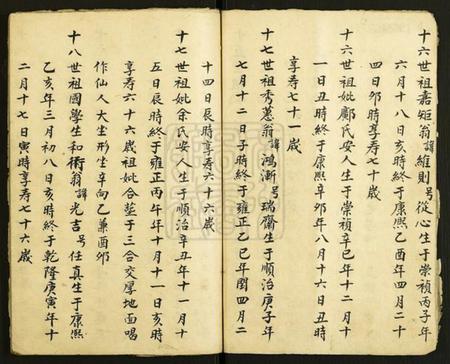 十六世祖嘉矩翁諱維則号從心生于崇禎丙子年
六月十八日亥時終于康熙乙酉年四月二十
四日卯時享寿七十歲
十六世祖妣鄺氏安人生于崇禎辛巳年十二月十
一日丑時終于康熙辛卯年八月十六日丑時
享寿七十一歲
十七世祖秀蔥翁諱鴻漸号瑞齋生于順治庚子年
七月十二日子時終于雍正乙巳年閏四月二
十四日辰時享寿六十六歲
十七世祖妣余氏安人生于順治辛丑年十一月十
五日辰時終于雍正丙午年十月十一日亥時
享寿六十六歲祖妣合塟于三合交厚地面喝
作仙人大坐形坐辛向乙兼酉卯
十八世祖國學生和術翁諱光吉号任真生于康熙
乙亥年三月初八日亥時終于乾隆庚寅年十
二月十七日寅時享寿七十六歲